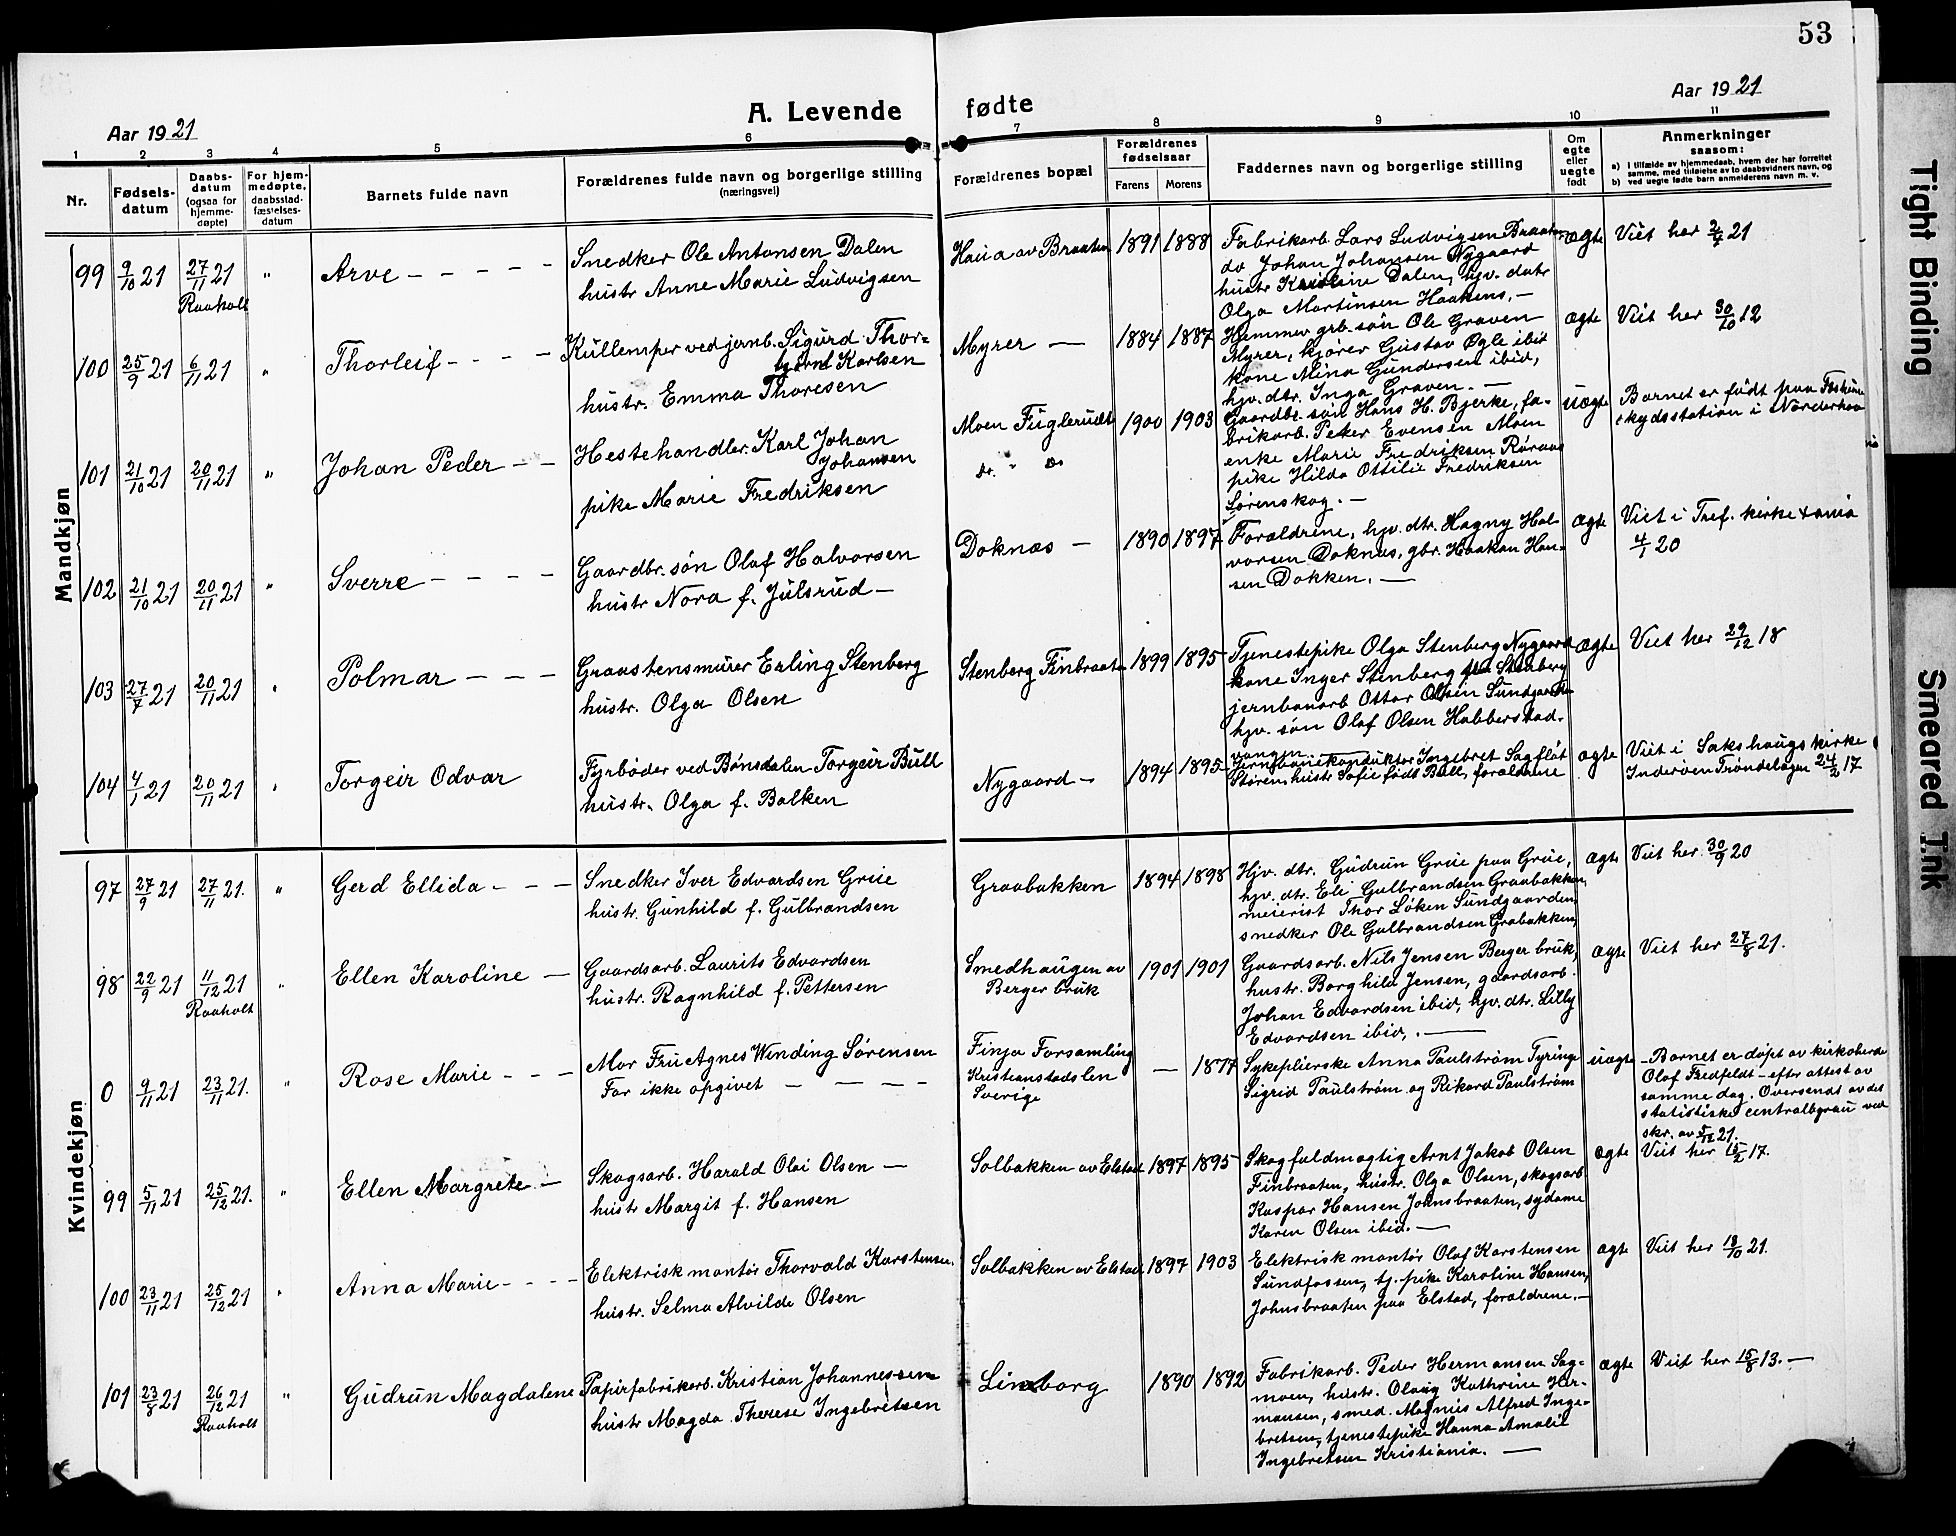 53
Aar 1921
A. Levende fødte
Aar 1921
1 2 3 4 5 6 7 8 9 10 11
Nr.
Fødsels-
datum
Daabs-
datum
(ogsaa for
hjemme-
døpte)
For hjem-
medøpte,
daabsstad-
fæstelses-
datum
Barnets fulde navn
Forældrenes fulde navn og borgerlige stilling
(næringsvei)
Forældrenes bopæl
Forældrenes
fødselsaar
Farens Morens
Faddernes navn og borgerlige stilling
Om
egte
eller
uegte
født
Anmerkninger
saasom:
a) I tilfælde av hjemmedaab, hvem der har forrettet
samme, med tilføielse av to daabsvidners navn, og
b) ved uegte fødte barn anmelderens navn m. v.
Mandkjøn
99 9/10 21 27/11 21 " Arve
Raaholt
Snedker Ole Antonsen Dalen
hustr Anne Marie Ludvigsen
Haua av Braaten 1891 1888
Fabrikarb. Lars Ludvigsen Braaten
do Johan Johansen Nygaard
hustr Kristine Dalen, hjv. datr
Olga Martinsen Haakens, —
ægte Viet her 2/7 21
100 25/9 21 6/11 21 " Thorleif
Kullemper ved jernb. Sigurd Thor-
bjørn Karlsen
hustr. Emma Thoresen
Myrer — 1884 1887
Hemmer grb. søn Ole Graven
Myrer, kjører Gustav Øgle ibid
kone Mina Gundersen ibid,
hjv. dtr. Inga Graven. —
ægte Viet her 30/10 12
101 21/10 21 20/11 21 " Johan Peder
Hestehandler Karl Johan
Johansen
pike Marie Fredriksen
Moen Fuglerudt 1900 1903
Do. " Do
Gaardbr. søn Hans H. Bjerke, fa-
brikarb. Peter Evensen Moen
enke Marie Fredriksen Røraas
pike Hilda Ottilie Fredriksen
Sørenskog. —
uægte Barnet er født paa
skydsstation i Norderhov
102 21/10 21 20/11 21 " Sverre
Gaardbr. søn Olaf Halvorsen
hustr Nora f. Julsrud —
Doknæs — 1890 1897
Forældrene, hjv. dtr. Hagny Hal-
vorsen Doknæs, gbr. Haakon Han-
sen Dokken. —
ægte Viet i Tref. kirke X ania
4/1 20
103 27/7 21 20/11 21 " Polmar
Graastensmurer Erling Stenberg
hustr. Olga Olsen
Stenberg Finbraaten 1899 1895
Tjenestepike Olga Stenberg Nygaard
kone Inger Stenberg Stenberg
jernbanarb Ottar Olsen Sundgaarden
hjv. søn Olaf Olsen Habberstad.
ægte Viet her 29/12 18
104 4/1 21 20/11 21 " Torgeir Odvar
Fyrbøder ved Bønsdalen Torgeir Bull
hustr. Olga f. Balken
Nygaard — 1894 1895
vangen
Jernbanekonduktør Ingebret Sagflåt
Støren, hustr Sofie født Bull, forældrene
ægte Viet i Sakshaugs kirke
Inderøen Trøndelagen 24/2 17
Kvindekjøn
97 27/9 21 27/11 21. " Gerd Ellida
Snedker Iver Edvardsen Grue
hustr. Gunhild f. Gulbrandsen
Graabakken 1894 1898
Hjv. dtr. Gudrun Grue paa Grue,
hjv. dtr. Eli Gulbrandsen Graabakken,
meierist Thor Løken Sundgaarden,
snedker Ole Gulbrandsen Grabakken,
ægte Viet her 30/9 20
98 22/9 21 11/12 21 " Ellen Karoline
Raaholt
Gaardsarb. Laurits Edvardsen
hustr. Ragnhild f. Pettersen
Smedhaugen av 1901 1901
Berger bruk
Gaardsarb. Nils Jensen Berger bruk,
hustr. Borghild Jensen, gaardsarb.
Johan Edvardsen ibid, hjv. dtr. Lilly
Edvardsen ibid,. —
ægte Viet her 27/8 21.
0 9/11 21 23/11 21. " Rose Marie
Mor Fru Agnes Winding Sørensen
Far ikke opgivet
Finja Forsamling — 1877
Kristianstadslen
Sverige
Sykepleierske Anna Paulstrøm Tyringe
Sigrid Paulstrøm og Rikard Paulstrøm
uægte — Barnet er døpt av kirkoherde
Olof Fredfeldt — efter attest av
samme dag. Oversendt av det
statistiske centralbyrau ved
skr. av 5/12 21.
99 5/11 21 25/12 21. " Ellen Margrete
Skogsarb. Harald Olai Olsen —
hustr Margit f. Hansen
Solbakken av Elstad 1897 1895
Skogfuldmægtig Arnt Jakob Olsen
Finbraaten, hustr. Olga Olsen, skogsarb.
Kaspar Hansen Johnsbraaten, sydame
Karen Olsen ibid. —
ægte Viet her 15/2 17.
100 23/11 21 25/12 21 " Anna Marie
Elektrisk montør Thorvald Karstensen.
hustr. Selma Alvilde Olsen
Solbakken av Elstad 1897 1903
Elektrisk montør Olaf Karstensen
Sundfossen, tj. pike Karoline Hansen,
Johnsbraaten paa Elstad, forældrene. —
ægte Viet her 18/10 21.
101 23/8 21 26/12 21 " Gudrun Magdalene
Raaholt
Papirfabrikarb. Kristian Johannessen
hustr Magda Therese Ingebretsen
Linborg 1890 1892
Fabrikarb. Peder Hermansen Sag-
moen, hustr. Olaug Kathrine Her-
mansen, smed. Magnus Alfred Inge-
bretsen, tjenestepike Hanna Amalie
Ingebretsen Kristiania. —
ægte Viet her 15/8 13. —
Tight Binding
Smeared Ink